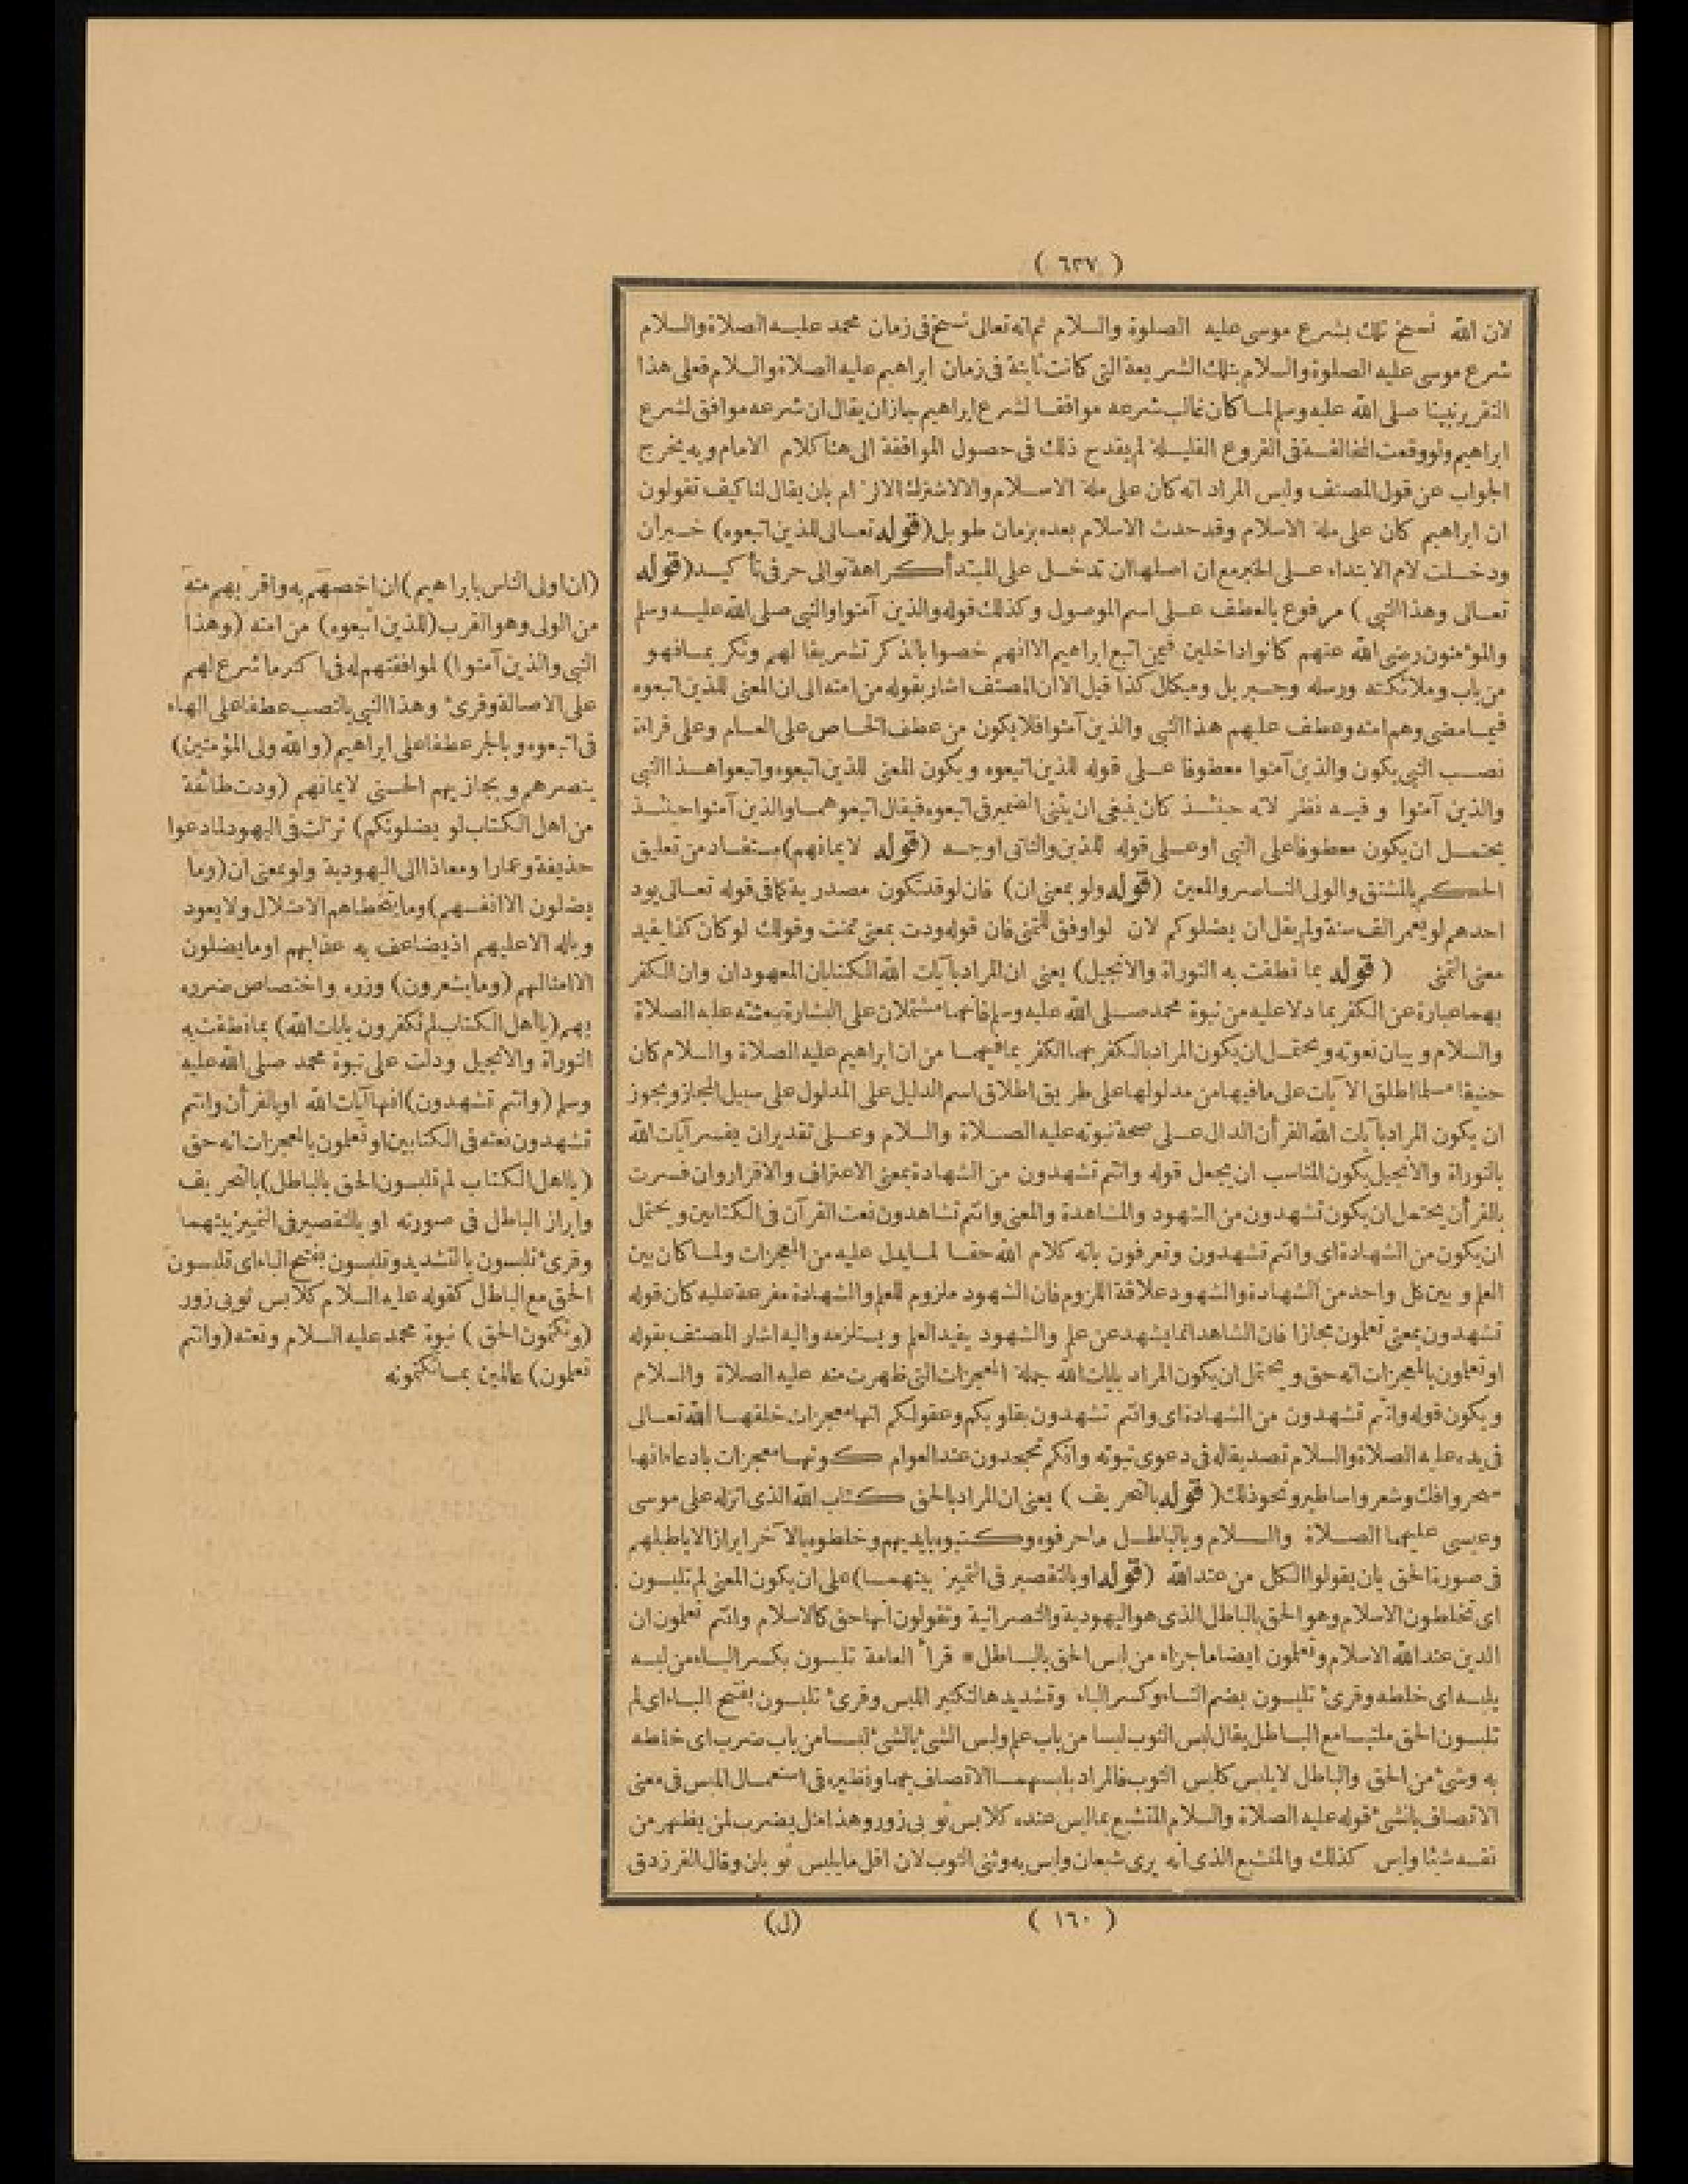 ( ٦٣٧ )
لان الله نسخ تلك بشرع موسى عليه الصلوة والسلام ثم انه تعالى نسخ فى زمان محمد عليه الصلاة والسلام
شرع موسى عليه الصلوة والسلام بتلك الشريعة التى كانت ثابتة فى زمان ابراهيم عليه الصلاة والسلام فعلى هذا
التقرير نبينا صلى الله عليه وسلم لما كان غالب شرعه موافقا لشرع ابراهيم جاز ان يقال ان شرعه موافق لشرع
ابراهيم ولو وقعت المخالفة فى الفروع القليلة لم يقدح ذلك فى حصول الموافقة الى هنا كلام الامام وبه يخرج
الجواب عن قول المصنف وليس المراد انه كان على ملة الاسلام والا لاشترك الالزام بان يقال لنا كيف تقولون
ان ابراهيم كان على ملة الاسلام وقد حدث الاسلام بعده بزمان طويل (قوله تعالى للذين اتبعوه) خبر ان
ودخلت لام الابتداء على الخبر مع ان اصلها ان تدخل على المبتدأ كراهة توالى حرفى تأكيد (قوله
تعالى وهذا النبى) مرفوع بالعطف على اسم الموصول وكذلك قوله والذين آمنوا والنبى صلى الله عليه وسلم
والمؤمنون رضى الله عنهم كانوا داخلين فيمن اتبع ابراهيم الا انهم خصوا بالذكر تشريفا لهم وتكريما فهو
من باب وملائكته ورسله وجبريل وميكال كذا قيل الا ان المصنف اشار بقوله من امته الى ان المعنى للذين اتبعوه
فيما مضى وهم امته وعطف عليهم هذا النبى والذين آمنوا فلا يكون من عطف الخاص على العام وعلى قراءة
نصب النبى يكون والذين آمنوا معطوفا على قوله للذين اتبعوه ويكون المعنى للذين اتبعوه واتبعوا هذا النبى
والذين آمنوا وفيه نظر لانه حينئذ كان ينبغى ان يثنى الضمير فى اتبعوه فيقال اتبعوهما والذين آمنوا حينئذ
يحتمل ان يكون معطوفا على النبى او على قوله للذين والثانى اوجه (قوله لايمانهم) مستفاد من تعليق
الحكم بالمشتق والولى الناصر والمعين (قوله ولو بمعنى ان) فان لو قد تكون مصدرية كما فى قوله تعالى يود
احدهم لو يعمر الف سنة ولم يقل ان يضلوكم لان لو اوفق للتمنى فان قوله ودت بمعنى تمنت وقولك لو كان كذا يفيد
معنى التمنى (قوله بما نطقت به التوراة والانجيل) يعنى ان المراد بآيات الله الكتابان المعهودان وان الكفر
بهما عبارة عن الكفر بما دلا عليه من نبوة محمد صلى الله عليه وسلم فانهما مشتملان على البشارة ببعثته عليه الصلاة
والسلام وبيان نعوته ويحتمل ان يكون المراد بالكفر بهما الكفر بما فيهما من ان ابراهيم عليه الصلاة والسلام كان
حنيفا مسلما اطلق الآيات على ما فيها من مدلولها على طريق اطلاق اسم الدليل على المدلول على سبيل المجاز ويجوز
ان يكون المراد بآيات الله القرأن الدال على صحة نبوته عليه الصلاة والسلام وعلى تقدير ان يفسر آيات الله
بالتوراة والانجيل يكون المناسب ان يجعل قوله وانتم تشهدون من الشهادة بمعنى الاعتراف والاقرار وان فسرت
بالقرأن يحتمل ان يكون تشهدون من الشهود والمشاهدة والمعنى وانتم تشاهدون نعت القرآن فى الكتابين ويحتمل
ان يكون من الشهادة اى وانتم تشهدون وتعرفون بانه كلام الله حقا لما يدل عليه من المعجزات ولما كان بين
العلم وبين كل واحد من الشهادة والشهود علاقة اللزوم فان الشهود ملزوم للعلم والشهادة مفرعة عليه كان قوله
تشهدون بمعنى تعلمون مجازا فان الشاهد انما يشهد عن علم والشهود يفيد العلم ويستلزمه واليه اشار المصنف بقوله
او تعلمون بالمعجزات انه حق ويحتمل ان يكون المراد بايات الله جملة المعجزات التى ظهرت منه عليه الصلاة والسلام
ويكون قوله وانتم تشهدون من الشهادة اى وانتم تشهدون بقلوبكم وعقولكم انها معجزات خلقها الله تعالى
فى يده عليه الصلاة والسلام تصديقا له فى دعوى نبوته وانكم تجحدون عند العوام كونها معجزات بادعاء انها
سحر وافك وشعر واساطير ونحو ذلك (قوله بالتحريف) يعنى ان المراد بالحق كتاب الله الذى انزله على موسى
وعيسى عليهما الصلاة والسلام وبالباطل ما حرفوه وكتبوه بايديهم وخلطوه بالآخر ابرازا لاباطيلهم
فى صورة الحق بان يقولوا الكل من عند الله (قوله او بالتقصير فى التمييز بينهما) على ان يكون المعنى لم تلبسون
اى تخلطون الاسلام وهو الحق بالباطل الذى هو اليهودية والنصرانية وتقولون انها حق كالاسلام وانتم تعلمون ان
الدين عند الله الاسلام وتعلمون ايضا ما جزاء من لبس الحق بالباطل * قرأ العامة تلبسون بكسر الباء من لبسه
يلبسه اى خلطه وقرئ تلبسون بضم التاء وكسر الباء وتشديدها لتكثير اللبس وقرئ تلبسون بفتح الباء اى لم
تلبسون الحق ملتبسا مع الباطل يقال لبس الثوب لبسا من باب علم ولبس الشئ بالشئ لبسا من باب ضرب اى خلطه
به وشئ من الحق والباطل لا يلبس كلبس الثوب فالمراد بلبسهما الاتصاف بهما ونظيره فى استعمال اللبس فى معنى
الاتصاف بالشئ قوله عليه الصلاة والسلام المتشبع بما ليس عنده كلابس ثوبى زور وهذا مثل يضرب لمن يظهر من
نفسه شيئا وليس كذلك والمتشبع الذى انه يرى شبعان وليس به وثنى الثوب لان اقل ما يلبس ثوبان وقال الفرزدق
( ١٦٠ ) (ل)
(ان اولى الناس بابراهيم) ان اخصهم به واقربهم منه
من الولى وهو القرب (للذين اتبعوه) من امته (وهذا
النبى والذين آمنوا) لموافقتهم له فى اكثر ما شرع لهم
على الاصالة وقرئ وهذا النبى بالنصب عطفا على الهاء
فى اتبعوه وبالجر عطفا على ابراهيم (والله ولى المؤمنين)
ينصرهم ويجازيهم الحسنى لايمانهم (ودت طائفة
من اهل الكتاب لو يضلونكم) نزلت فى اليهود لما دعوا
حذيفة وعمارا ومعاذا الى اليهودية ولو بمعنى ان (وما
يضلون الا انفسهم) وما يتخطاهم الاضلال ولا يعود
وباله الا عليهم اذ يضاعف به عذابهم او ما يضلون
الا امثالهم (وما يشعرون) وزره واختصاص ضرره
بهم (يا اهل الكتاب لم تكفرون بايات الله) بما نطقت به
التوراة والانجيل ودلت على نبوة محمد صلى الله عليه
وسلم (وانتم تشهدون) انها آيات الله او بالقرأن وانتم
تشهدون نعته فى الكتابين او تعلمون بالمعجزات انه حق
(يا اهل الكتاب لم تلبسون الحق بالباطل) بالتحريف
وابراز الباطل فى صورته او بالتقصير فى التمييز بينهما
وقرئ تلبسون بالتشديد وتلبسون بفتح الباء اى تلبسون
الحق مع الباطل كقوله عليه السلام كلابس ثوبى زور
(وتكتمون الحق) نبوة محمد عليه السلام ونعته (وانتم
تعلمون) عالمين بما تكتمونه